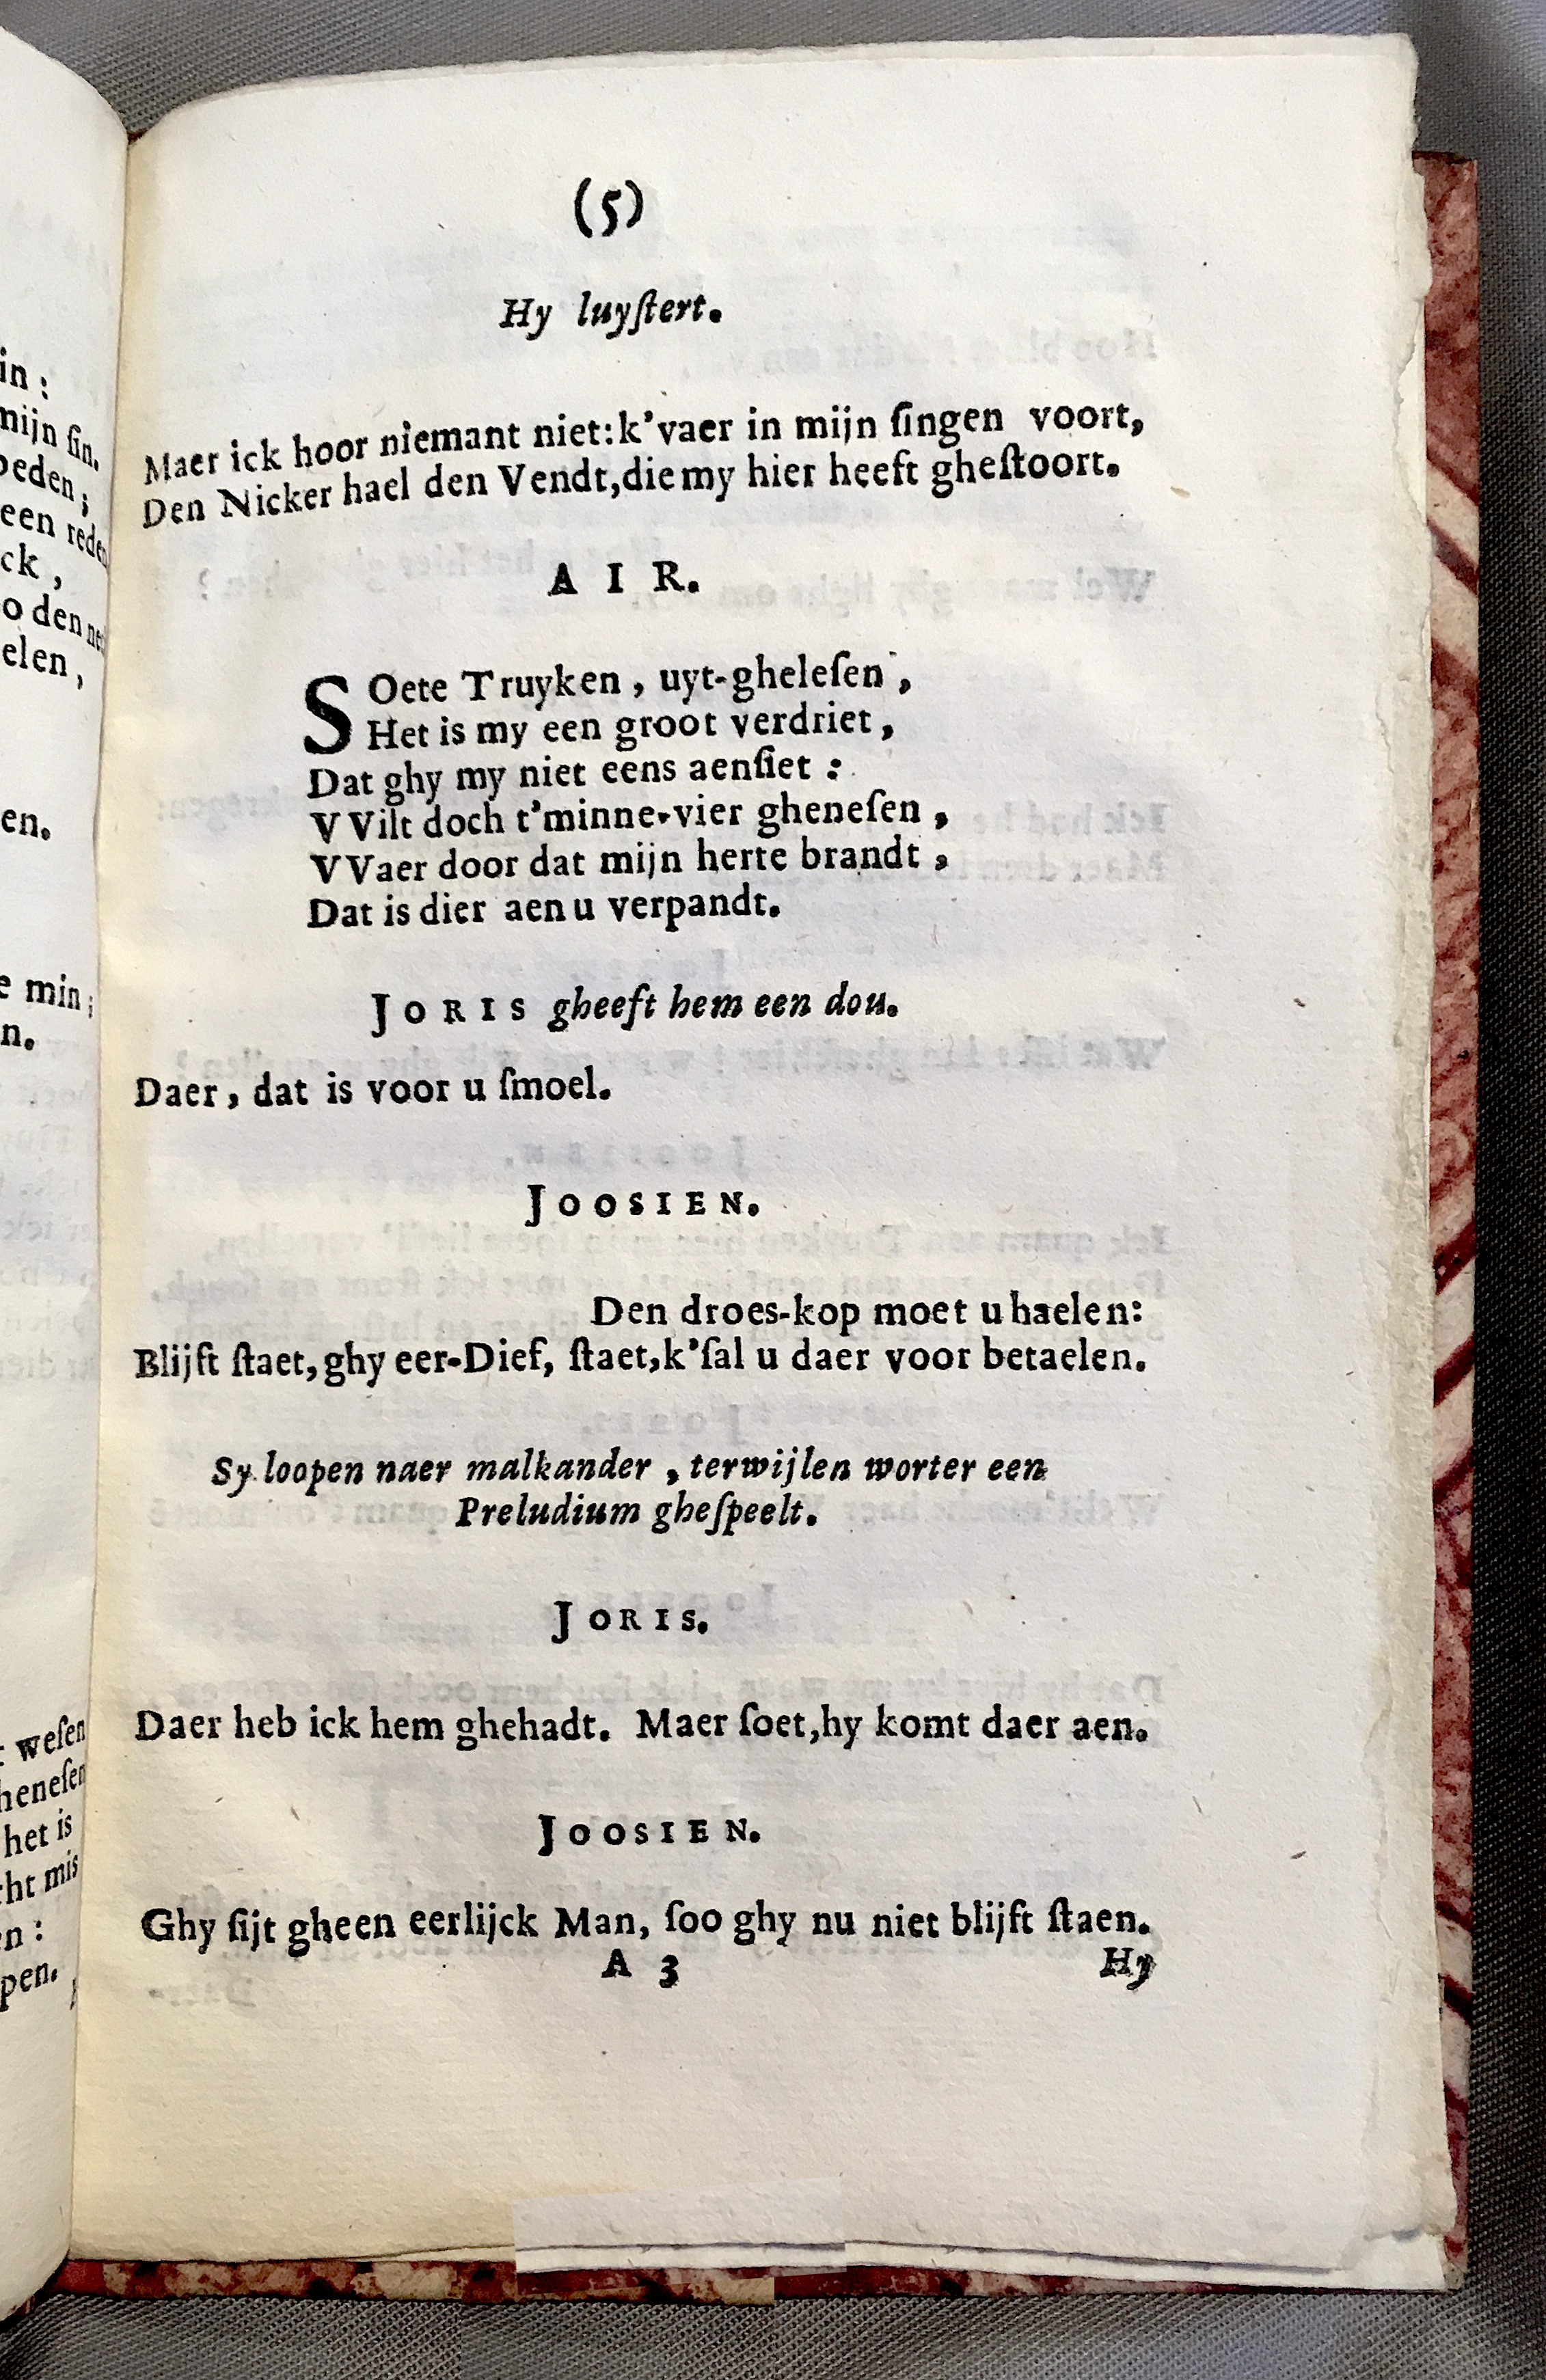 (5)
Hy luyſtert.
Maer ick hoor niemant niet: k'vaer in mijn ſingen voort,
Den Nicker hael den Vendt, die my hier heeft gheſtoort.
AIR.
SOete Truyken, uyt-gheleſen,
Het is my een groot verdriet,
Dat ghy my niet eens aenſiet:
VVilt doch t'minne-vier gheneſen,
VVaer door dat mijn herte brandt,
Dat is dier aen u verpandt.
JORIS gheeft hem een dou.
Daer, dat is voor u ſmoel.
JOOSIEN.
Den droes-kop moet u haelen:
Blijft ſtaet, ghy eer-Dief, ſtaet, k'ſal u daer voor betaelen.
Sy loopen naer malkander, terwijlen worter een
Preludium gheſpeelt.
JORIS.
Daer heb ick hem ghehadt. Maer ſoet, hy komt daer aen.
JOOSIEN.
Ghy ſijt gheen eerlijck Man, ſoo ghy nu niet blijft ſtaen.
A 3 Hy